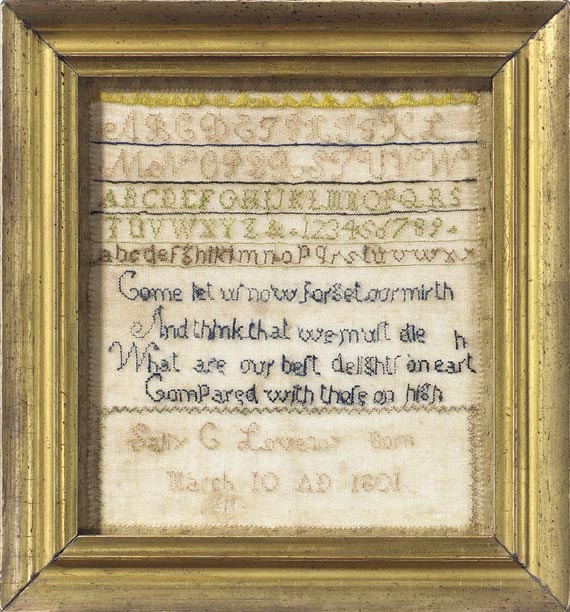 A B C D E F G H I J K L
M N O P Q R S T U V W
A B C D E F G H I J K L M N O P Q R S
T U V W X Y Z & . 1 2 3 4 5 6 7 8 9 .
a b c d e f g h i k l m n o p q r s t u v w x
Come let us now forget our mirth
And think that we must die h
What are our best delights on eart
Compared with those on high
Sally C born
March 10 AD 1801